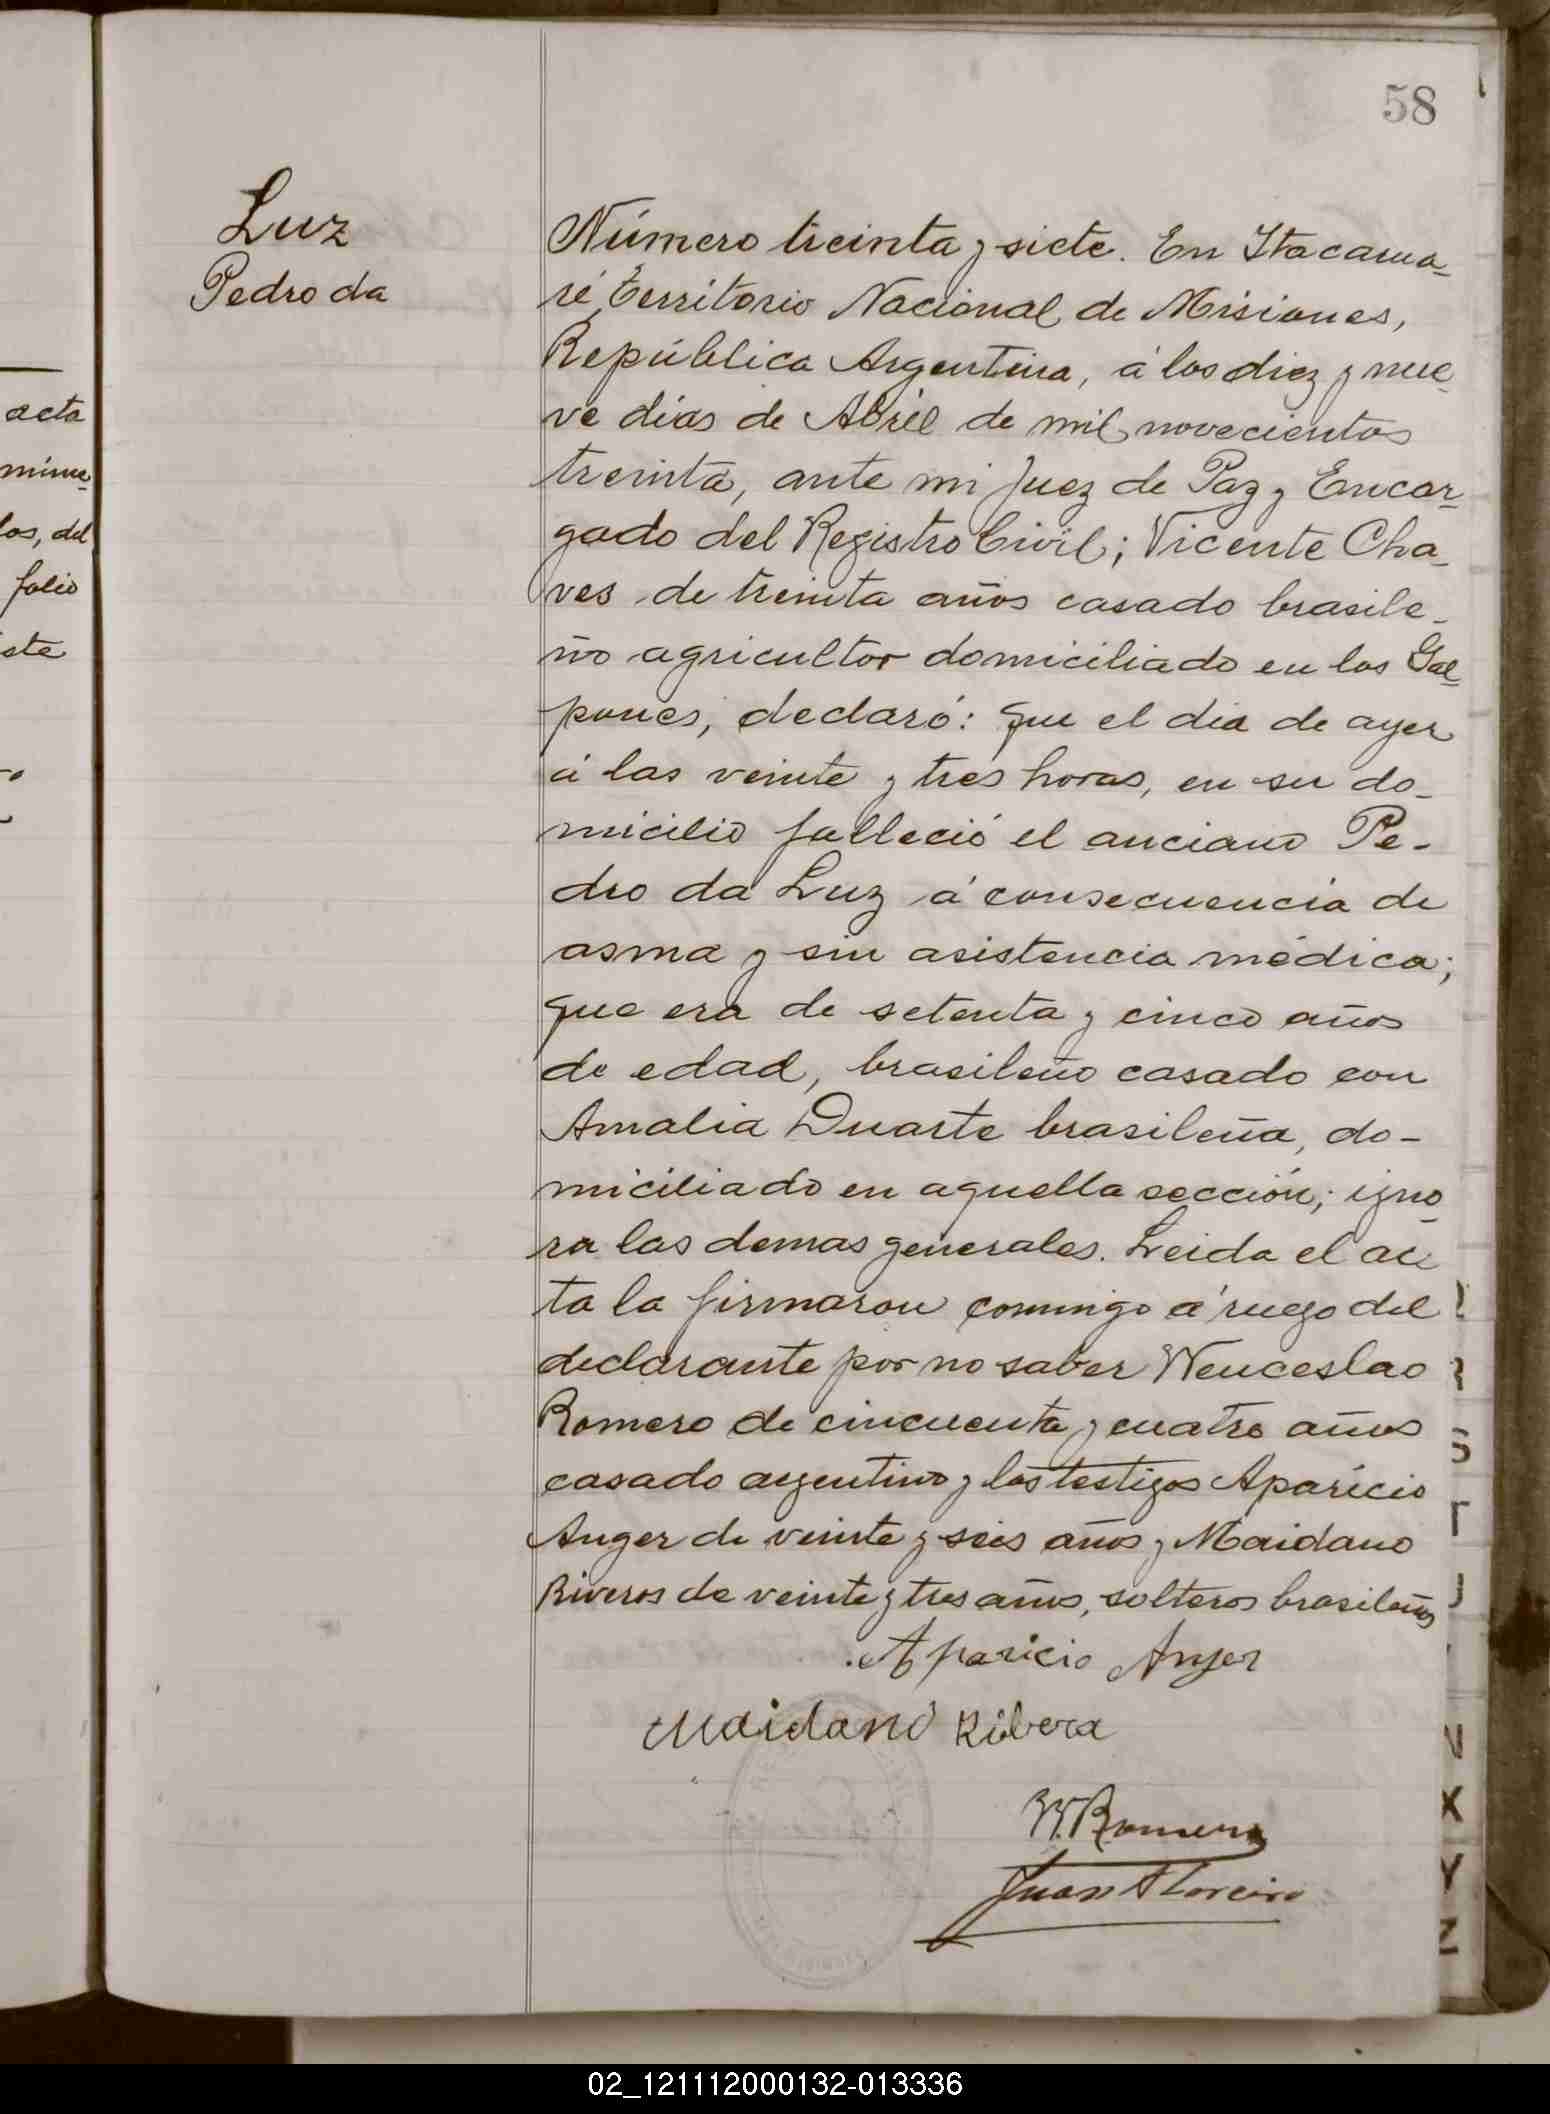 58
Luz
Pedro da
acta
los, del
folio
Número treinta y siete. En Itacarua-
ré, territorio Nacional de Misiones,
República Argentina, á los diez y nue-
ve dias de Abril de mil novecientos
treinta, ante mi Juez de Paz y Encar-
gado del Registro Civil; Vicente Cha-
ves de treinta años casado brasile-
ño agricultor domiciliado en los Gal-
pones, declaró: que el dia de ayer
á las veinte y tres horas, en su do-
micilio falleció el anciano Pe-
dro da Luz á consecuencia de
asma y sin asistencia médica;
que era de setenta y cinco años
de edad, brasileño casado con
Amalia Duarte brasileña, do-
miciliado en aquella sección; igno-
ra las demas generales. Leida el ac
ta la firmaron conmigo á ruego del
declarante por no saber Wenceslao
Romero de cincuenta y cuatro años
casado argentino y los testigos Aparicio
Anger de veinte y seis años y Maidano
Riveros de veinte y tres años, solteros brasileños
Aparicio Anger
Maidano Ribera
W. Romero
Juan
S
T
U
V
X
Y
Z
02_121112000132-013336